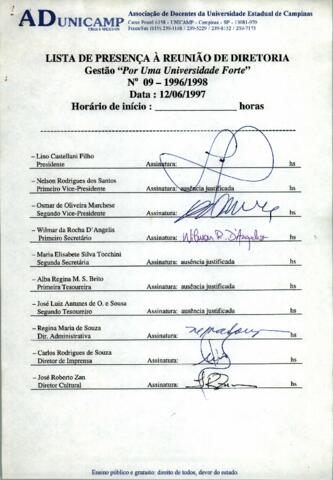 ADUNICAMP
Associação de Docentes da Universidade Estadual de Campinas
LISTA DE PRESENÇA À REUNIÃO DE DIRETORIA
Gestão "Por Uma Universidade Forte"
Nº 09 – 1996/1998
Data : 12/06/1997
Horário de início : ________________ horas
– Lino Castellani Filho
Presidente Assinatura: hs
– Nelson Rodrigues dos Santos
Primeiro Vice-Presidente Assinatura: ausência justificada
– Osmar de Oliveira Marchese
Segundo Vice-Presidente Assinatura: hs
– Wilmar da Rocha D'Angelis
Primeiro Secretário Assinatura: Wilmar R. D'Angelis hs
– Maria Elisabete Silva Tocchini
Segunda Secretária Assinatura: ausência justificada
– Alba Regina M. S. Brito
Primeira Tesoureira Assinatura: ausência justificada
– José Luiz Antunes de O. e Sousa
Segundo Tesoureiro Assinatura: ausência justificada
– Regina Maria de Souza
Dir. Administrativa Assinatura: hs
– Carlos Rodrigues de Souza
Diretor de Imprensa Assinatura: hs
– José Roberto Zan
Diretor Cultural Assinatura: hs
Ensino público e gratuito: direito de todos, dever do estado.